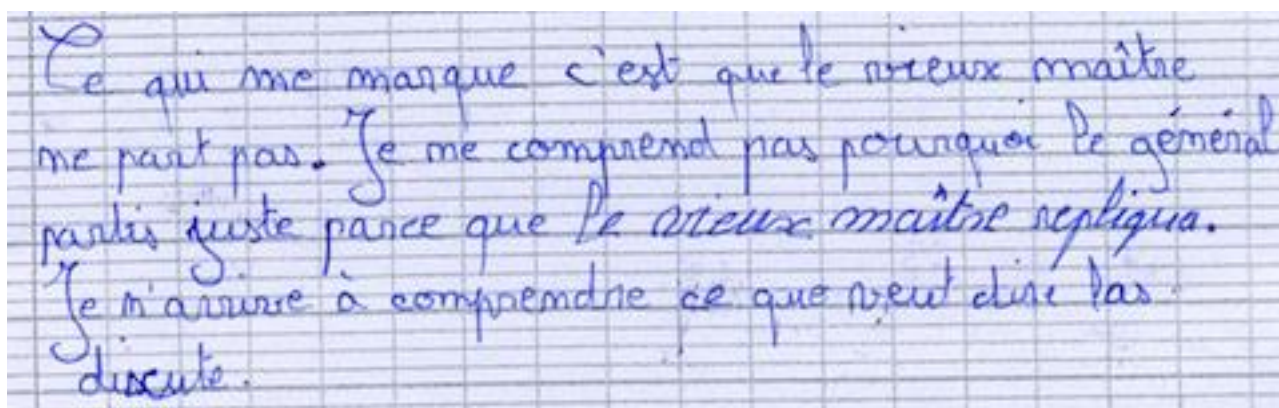 Ce qui me marque c'est que le vieux maître
ne part pas. Je ne comprend pas pourquoi le général
partis juste parce que le vieux maître repliqua.
Je n'arrive à comprendre ce que veut dire las
discute.